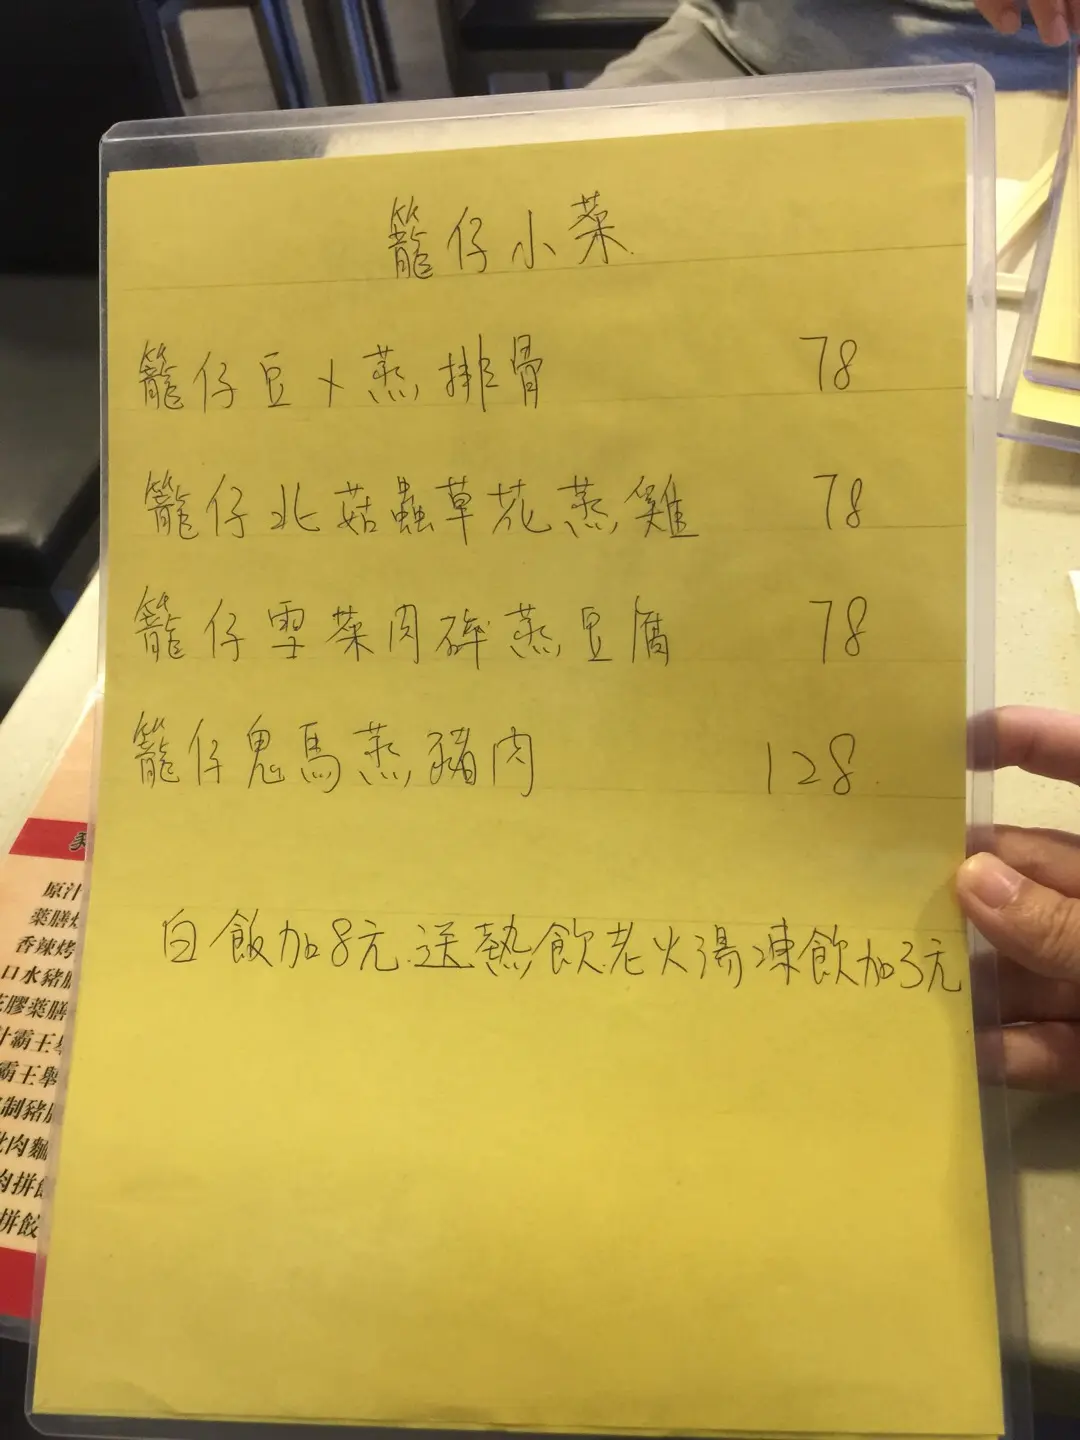 籠仔小菜
籠仔豆乂蒸排骨 78
籠仔北菇蟲草花蒸雞 78
籠仔雪菜肉碎蒸豆腐 78
籠仔鬼馬蒸豬肉 128
白飯加8元.送熱飲老火湯凍飲加3元
原汁
藥膳
香辣烤
口水豬
膠藥膳
汁霸王
霸王
制豬
肉麵
肉拼
拼餃